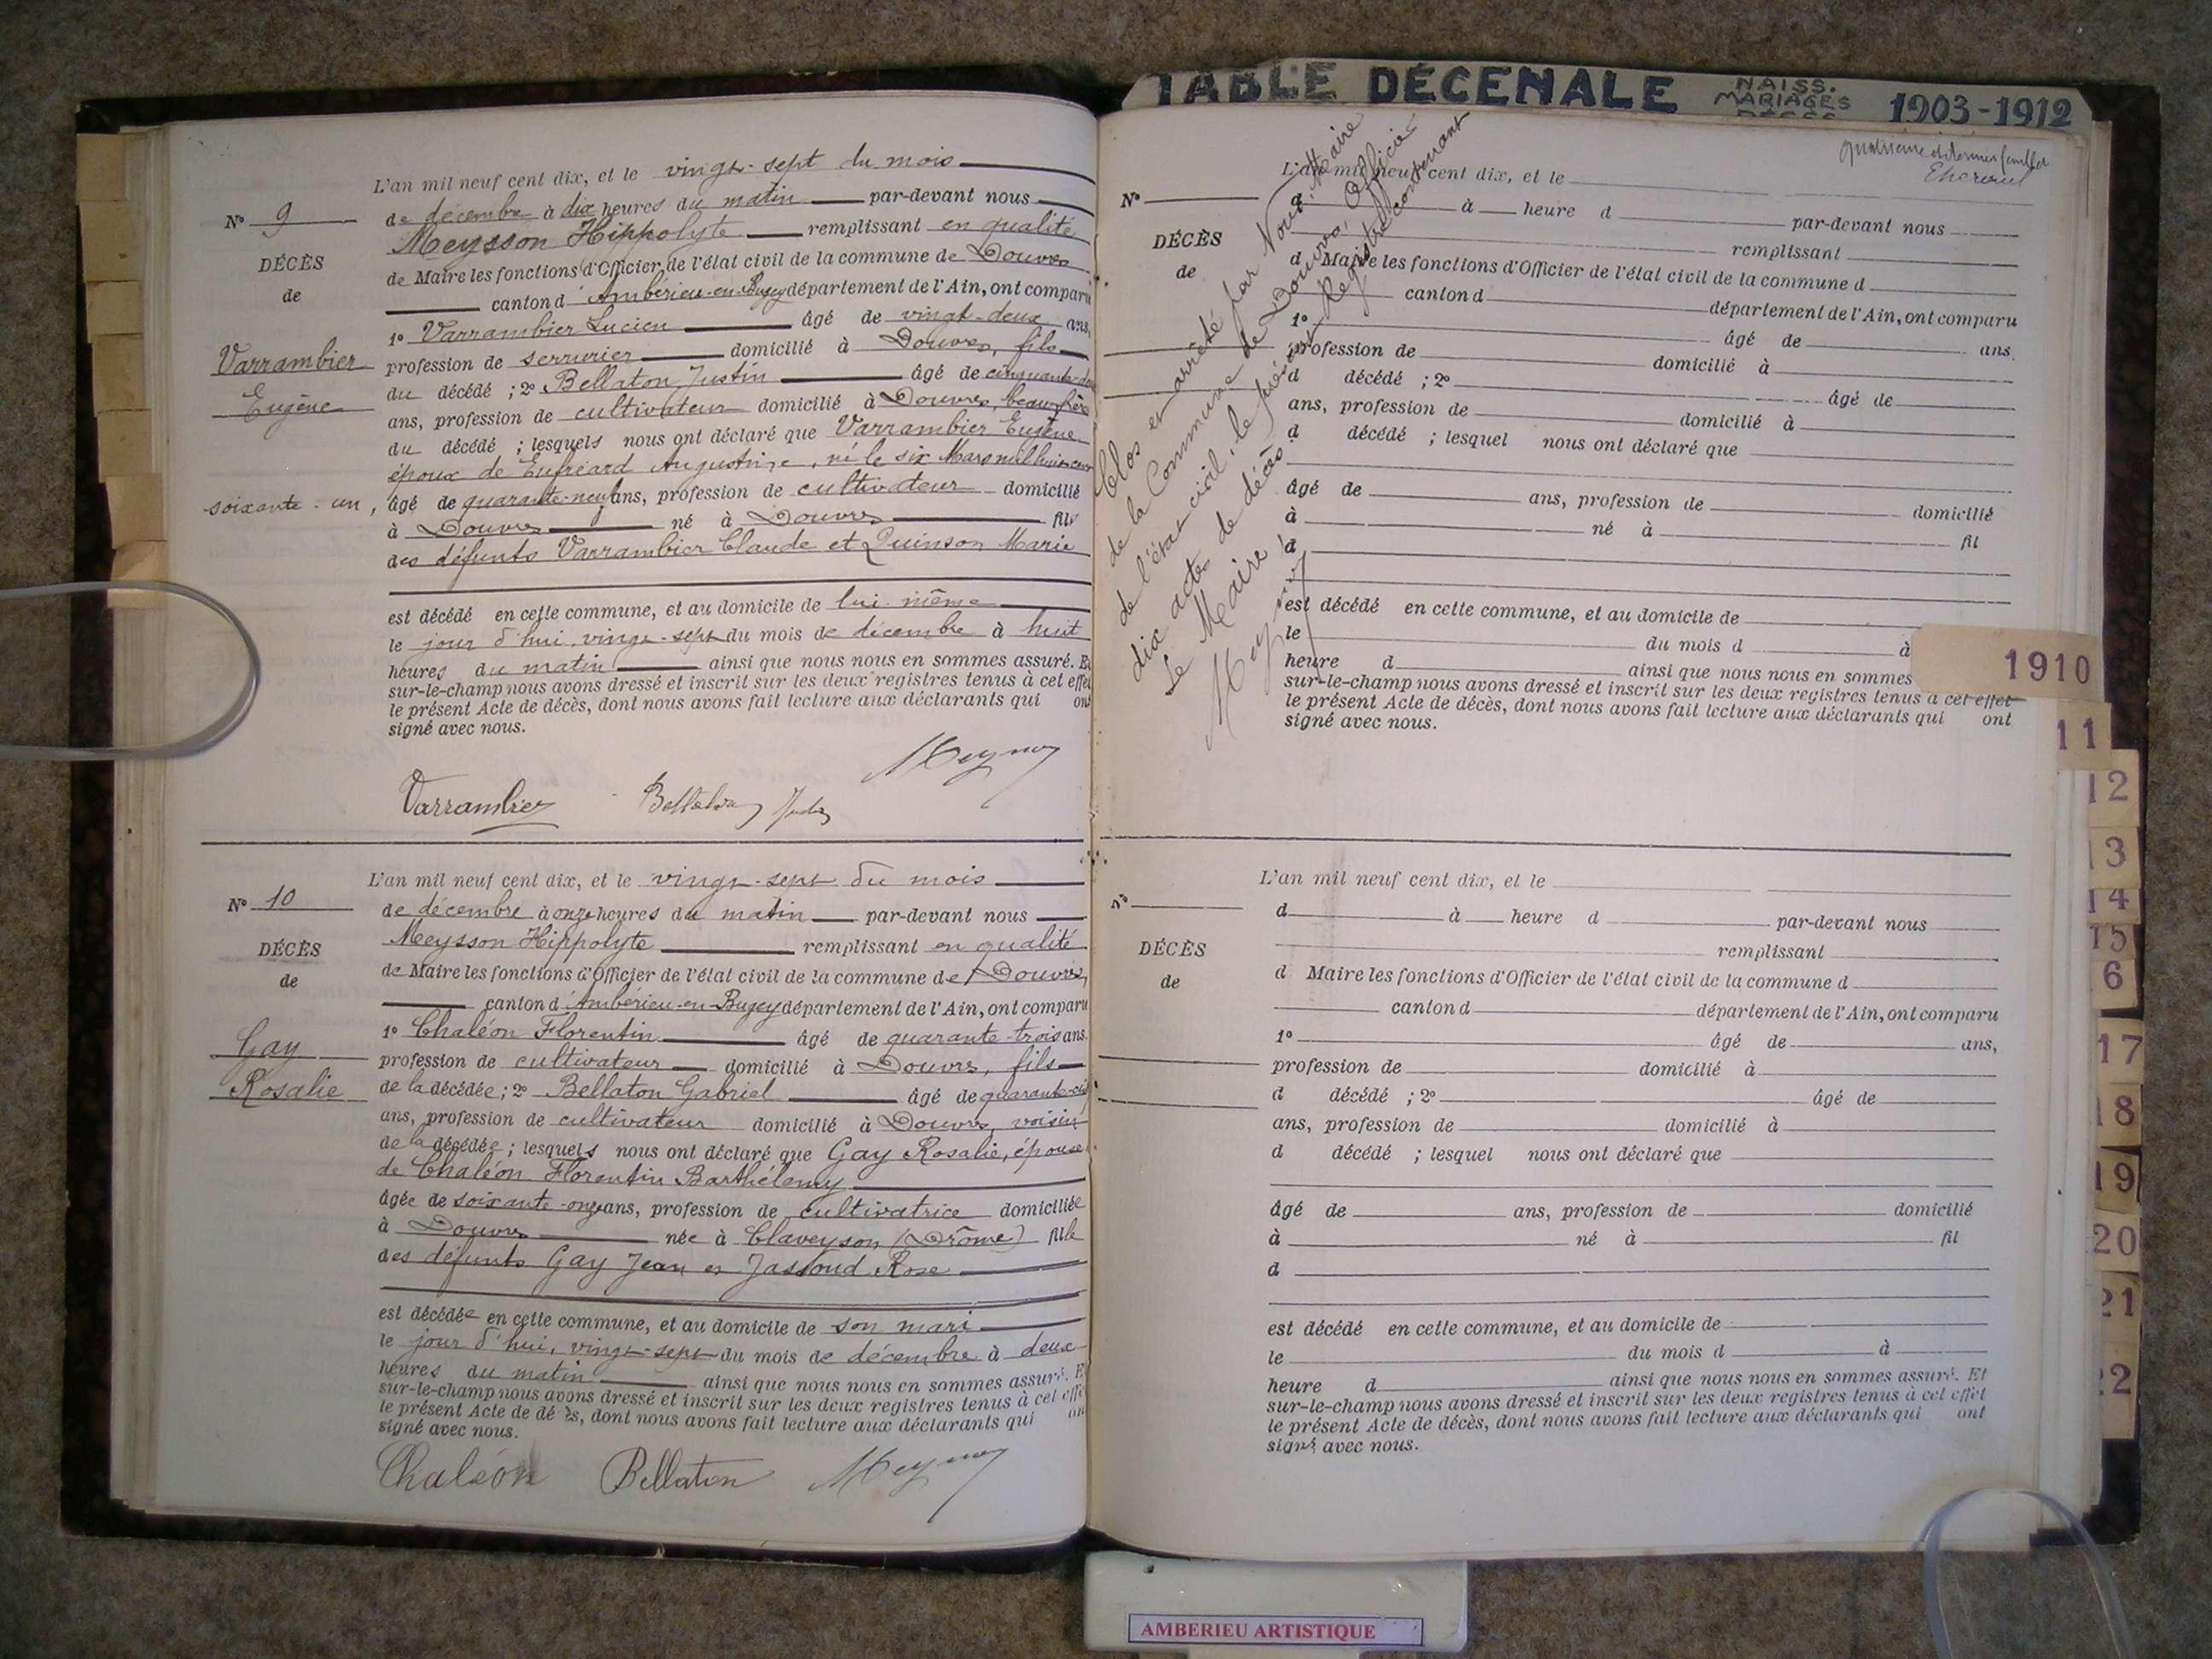 TABLE DÉCENALE NAISS. MARIAGES DÉCÈS 1903-1912
L'an mil neuf cent dix, et le vingt-sept du mois
N° 9
de décembre à dix heures du matin par-devant nous
Meysson Hippolyte remplissant en qualité
DÉCÈS
de Maire les fonctions d'Officier de l'état civil de la commune de Douvres
de
canton d'Ambérieu-en-Bugey département de l'Ain, ont comparu
1° Varrambier Lucien âgé de vingt-deux ans,
Varrambier
profession de serrurier domicilié à Douvres, fils
du décédé ; 2° Bellaton Justin âgé de cinquante-
Eugène
ans, profession de cultivateur domicilié à Douvres, beau-frère
du décédé ; lesquels nous ont déclaré que Varrambier Eugène
époux de Augustine, né le six Mars mil huit cent
soixante-un, âgé de quarante-neuf ans, profession de cultivateur domicilié
à Douvres né à Douvres fils
des défunts Varrambier Claude et Quinson Marie
est décédé en cette commune, et au domicile de lui-même
le jour d'hui, vingt-sept du mois de décembre à huit
heures du matin ainsi que nous nous en sommes assuré. Et
sur-le-champ nous avons dressé et inscrit sur les deux registres tenus à cet effet
le présent Acte de décès, dont nous avons fait lecture aux déclarants qui ont
signé avec nous.
Meysson
Varrambier Bellaton Justin
L'an mil neuf cent dix, et le vingt-sept du mois
N° 10
de décembre à onze heures du matin par-devant nous
Meysson Hippolyte remplissant en qualité
DÉCÈS
de Maire les fonctions d'Officier de l'état civil de la commune de Douvres,
de
canton d'Ambérieu-en-Bugey département de l'Ain, ont comparu
1° Chaléon Florentin âgé de quarante-trois ans
Gay
profession de cultivateur domicilié à Douvres, fils
Rosalie
de la décédée ; 2° Bellaton Gabriel âgé de quarante-
ans, profession de cultivateur domicilié à Douvres, voisin
de la décédée ; lesquels nous ont déclaré que Gay Rosalie, épouse
de Chaléon Florentin Barthélemy
âgée de soixante-onze ans, profession de cultivatrice domiciliée
à Douvres née à Claveyson (Drôme) fille
des défunts Gay Jean et Jassoud Rose
est décédée en cette commune, et au domicile de son mari
le jour d'hui, vingt-sept du mois de décembre à deux
heures du matin ainsi que nous nous en sommes assuré. Et
sur-le-champ nous avons dressé et inscrit sur les deux registres tenus à cet effet
le présent Acte de décès, dont nous avons fait lecture aux déclarants qui ont
signé avec nous.
Chaléon Bellaton Meysson
quatrième et dernier feuillet
Clos et arrêté par Nous, Maire
de la Commune de Douvres, Officier
de l'état civil, le présent Registre contenant
dix actes de décès.
Le Maire,
Meysson
L'an mil neuf cent dix, et le
N°
d à heure d par-devant nous
DÉCÈS
remplissant
de
d Maire les fonctions d'Officier de l'état civil de la commune d
canton d département de l'Ain, ont comparu
1° âgé de ans,
profession de domicilié à
d décédé ; 2° âgé de
ans, profession de domicilié à
d décédé ; lesquel nous ont déclaré que
âgé de ans, profession de domicilié
à né à fil
d
est décédé en cette commune, et au domicile de
le du mois d à
heure d ainsi que nous nous en sommes
sur-le-champ nous avons dressé et inscrit sur les deux registres tenus à cet effet
le présent Acte de décès, dont nous avons fait lecture aux déclarants qui ont
signé avec nous.
L'an mil neuf cent dix, et le
N°
d à heure d par-devant nous
DÉCÈS
remplissant
de
d Maire les fonctions d'Officier de l'état civil de la commune d
canton d département de l'Ain, ont comparu
1° âgé de ans,
profession de domicilié à
d décédé ; 2° âgé de
ans, profession de domicilié à
d décédé ; lesquel nous ont déclaré que
âgé de ans, profession de domicilié
à né à fil
d
est décédé en cette commune, et au domicile de
le du mois d à
heure d ainsi que nous nous en sommes assuré. Et
sur-le-champ nous avons dressé et inscrit sur les deux registres tenus à cet effet
le présent Acte de décès, dont nous avons fait lecture aux déclarants qui ont
signé avec nous.
1910
11
12
13
14
15
6
17
18
19
20
21
22
AMBERIEU ARTISTIQUE